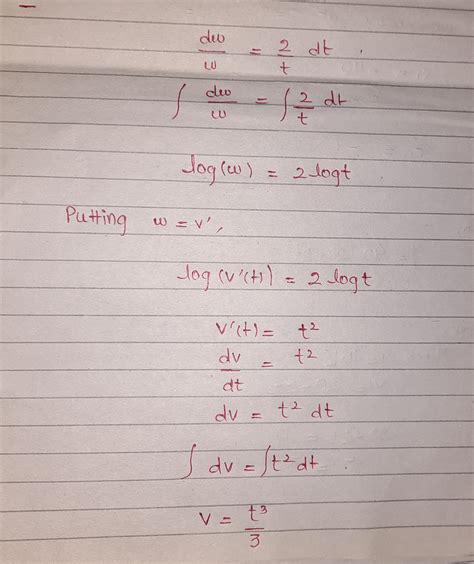 dw/w = 2/t dt .
∫ dw/w = ∫ 2/t dt
log(w) = 2 logt
Putting w = v',
log (v'(t)) = 2 logt
v'(t) = t²
dv/dt = t²
dv = t² dt
∫ dv = ∫ t² dt .
v = t³/3